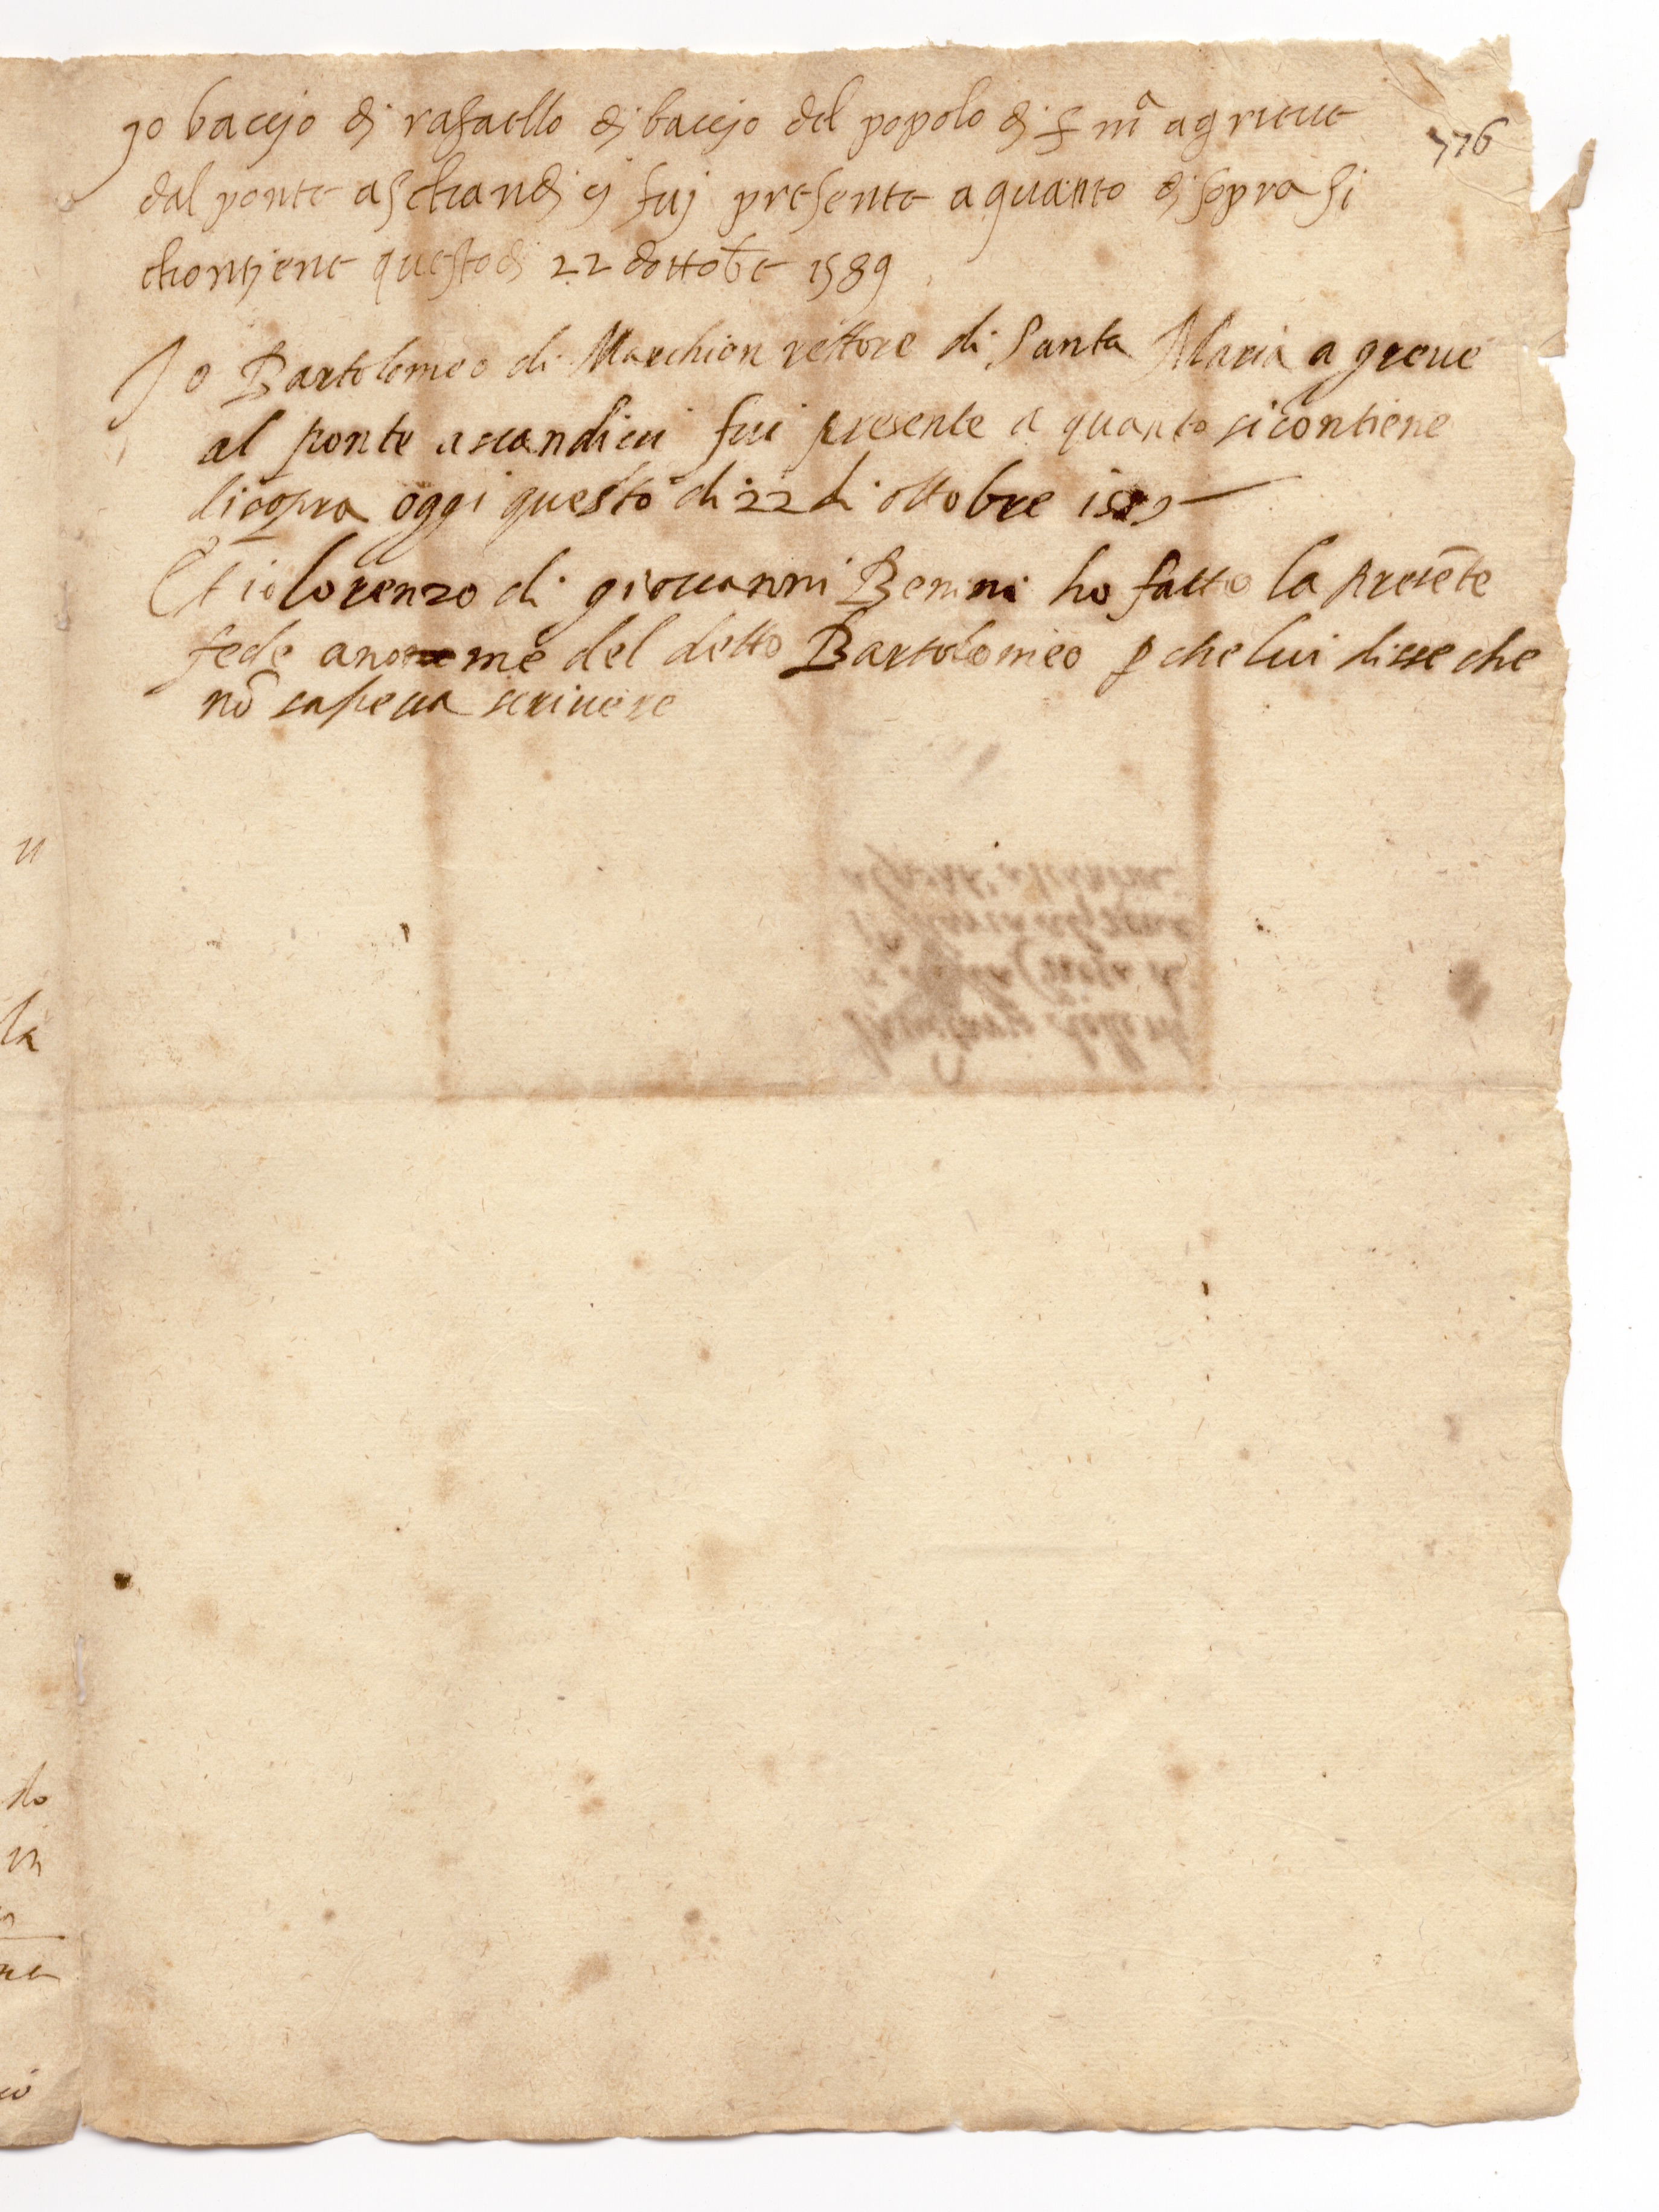 776
jo baccjo dj rafaello dj baccjo del popolo dj S mª a grieve
dal ponte aschandjcj fuj presente a quanto dj sopra si
chontjene questo dj 22 dottobe 1589
Io Bartolomeo di Marchion rettore di Santa Maria a greue
al ponte a scandicci fui presente a quanto si contiene
di sopra oggi questo di 22 di ottobre 1589
Et io lorenzo di giouanni Benini ho fatto la presēte
fede a nome del detto Bartolomeo p che lui disse che
nō sapeua scriuere
u
la
do
in